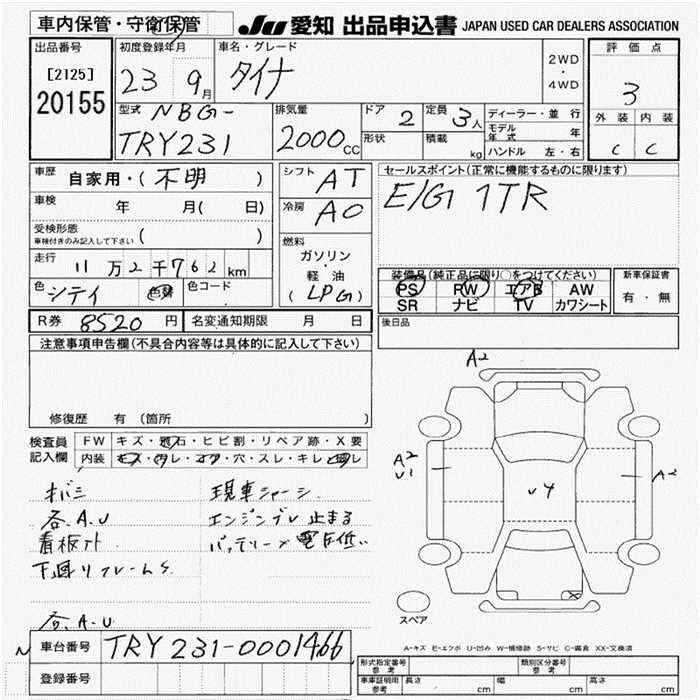 車内保管・守衛保管
JU 愛知 出品申込書 JAPAN USED CAR DEALERS ASSOCIATION
出品番号
[2125]
20155
初度登録年月
23 9月
車名・グレード
ダイナ
2WD
・
4WD
評価点
3
外装 内装
C C
型式 NBG-
TRY231
排気量
2000cc
ドア 2
定員 3人
形状
積載 kg
ディーラー・並行
モデル年式 年
ハンドル 左・右
車歴
自家用・(不明)
車検
年 月( 日)
受検形態
車検付きのみ記入して下さい( )
走行
11万2千762km
色 シティ 色替 色コード
シフト AT
冷房 AC
燃料
ガソリン
・
軽油
(LPG)
セールスポイント(正常に機能するものに限ります)
E/G 1TR
装備品(純正品に限り○をつけてください)
PS PW エアB AW
SR ナビ TV カワシート
新車保証書
有・無
R券 8520円 名変通知期限 月 日
後日品
注意事項申告欄(不具合内容等は具体的に記入して下さい)
修復歴 有(箇所 )
検査員
記入欄
FW キズ・飛石・ヒビ割・リペア跡・X要
内装 キズ・汚レ・コゲ・穴・スレ・キレ
オバミ
各.A.U
看板アト
下廻リフレームS
各.A.U
現車シャーシ.
エンジンブレ止まる
バッテリー× 電圧低い
A2
A2
U1
U4
A2
X
スペア
A-キズ E-エクボ U-凹み W-補修跡 S-サビ C-腐食 XX-交換済
車台番号 TRY231-0001466
登録番号
形式指定番号 参考
類別区分番号 参考
車庫証明用 参考 長さ cm 幅 cm 高さ cm